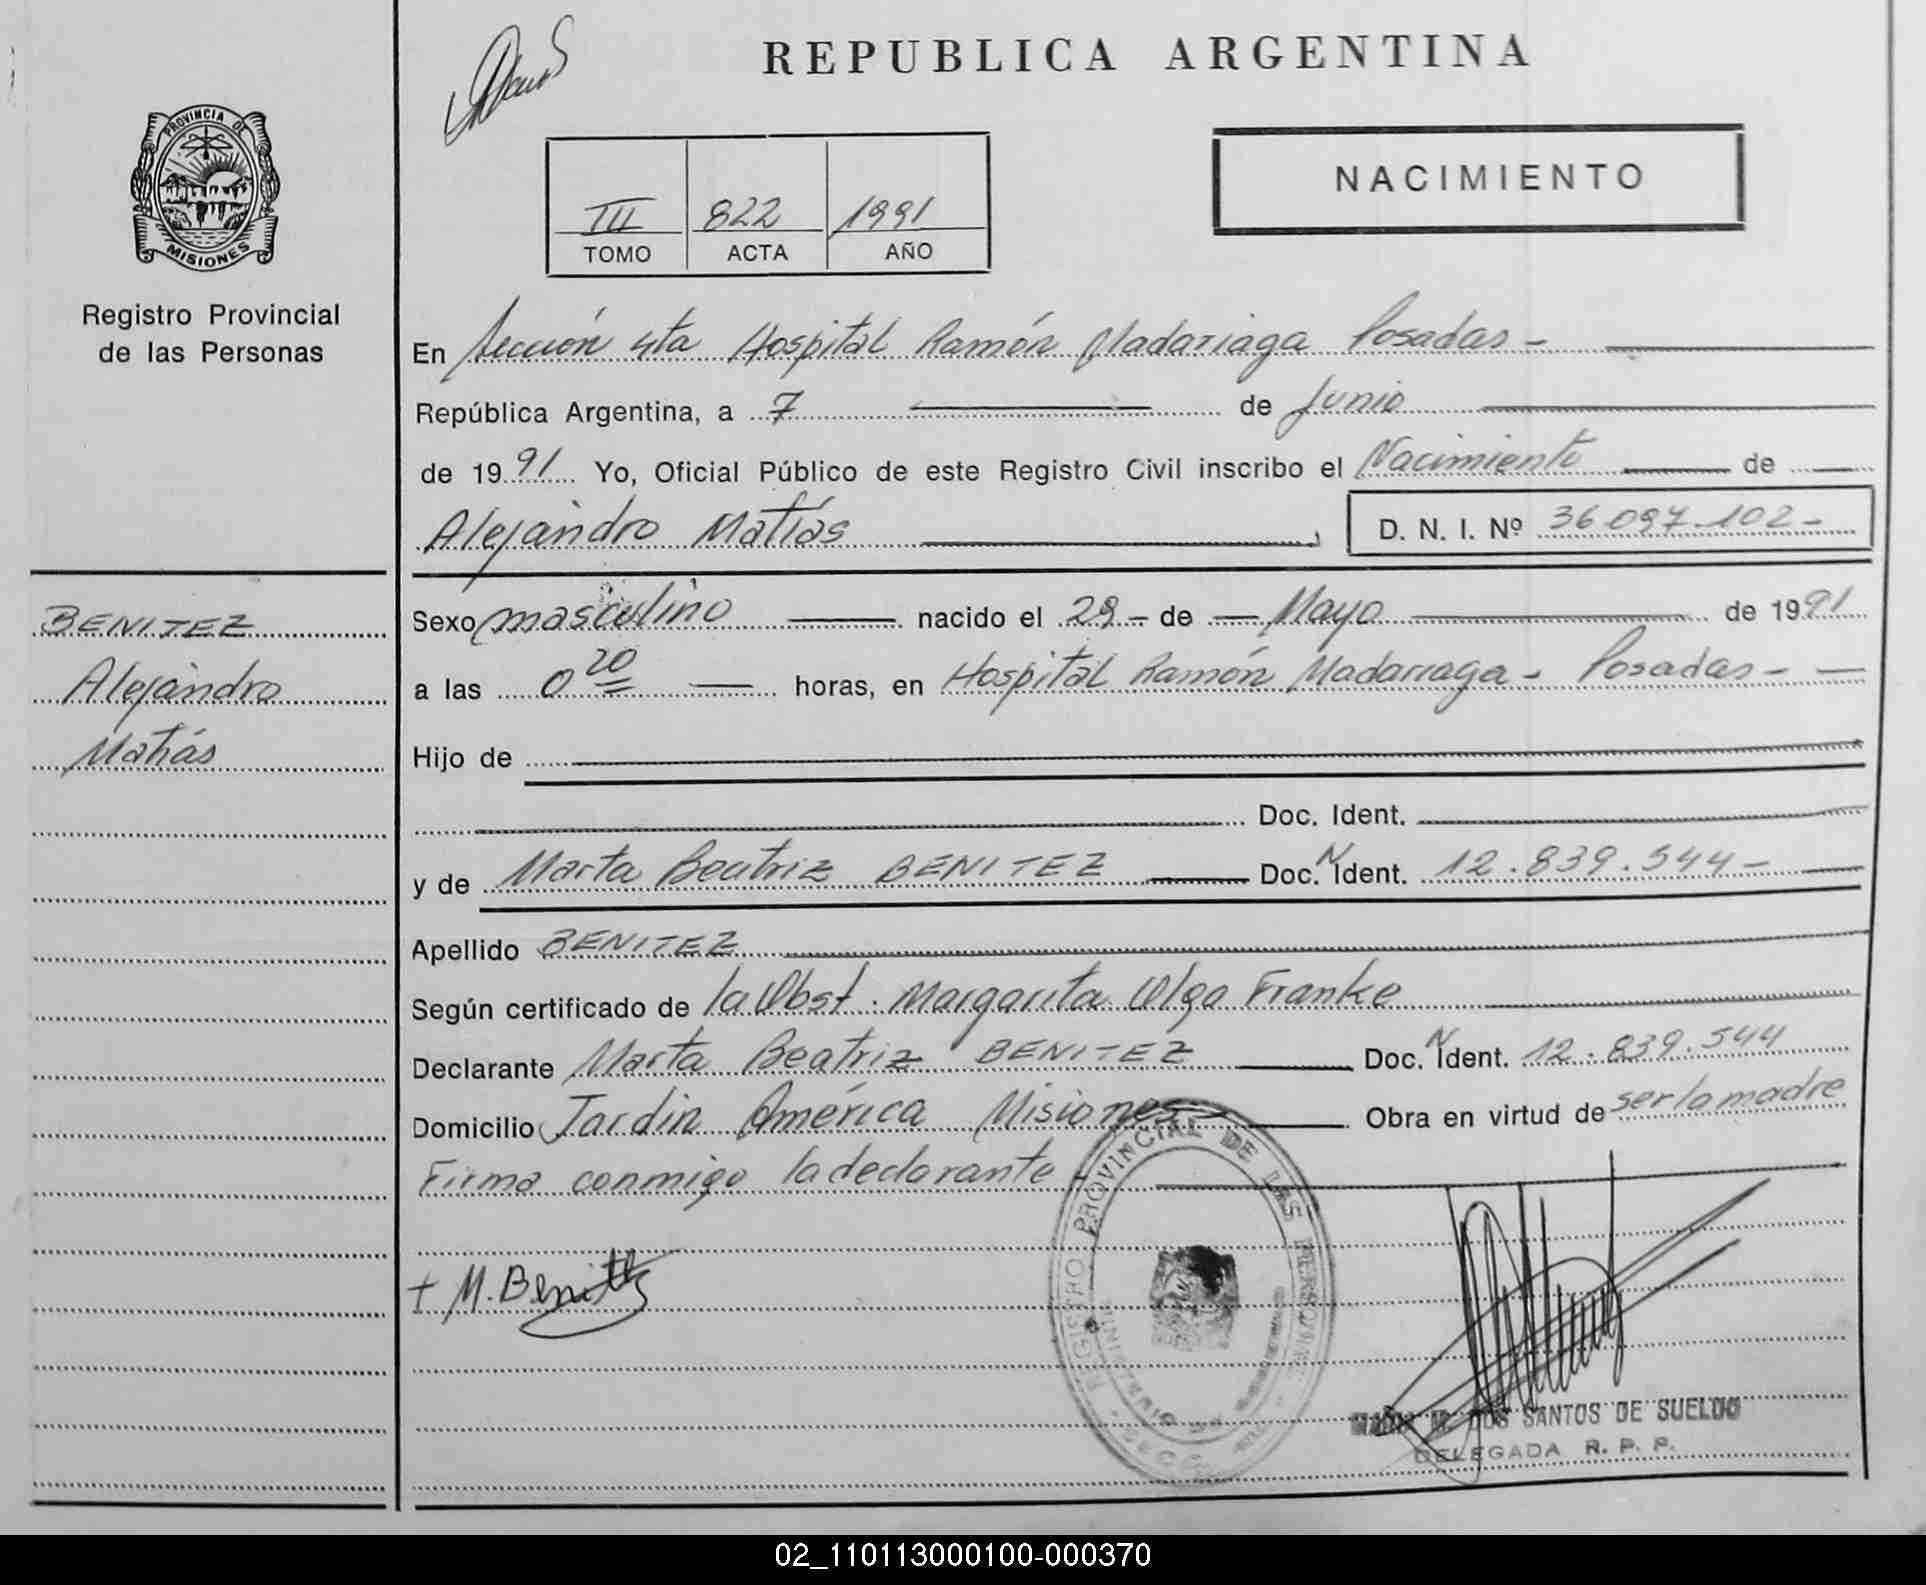 REPUBLICA ARGENTINA
PROVINCIA DE
MISIONES
Registro Provincial
de las Personas
NACIMIENTO
III 822 1991
TOMO ACTA AÑO
En Sección 4ta Hospital Ramón Madariaga Posadas -
República Argentina, a 7 de Junio
de 1991 Yo, Oficial Público de este Registro Civil inscribo el Nacimiento de
Alejandro Matías D. N. I. Nº 36.097.102 -
BENITEZ
Alejandro
Matías
Sexo masculino nacido el 29 - de Mayo de 1991
a las 0 20 horas, en Hospital Ramón Madariaga - Posadas -
Hijo de
Doc. Ident.
y de Marta Beatriz BENITEZ Doc. N Ident. 12.839.544 -
Apellido BENITEZ
Según certificado de la Obst. Margarita Olga Franke
Declarante Marta Beatriz BENITEZ Doc. N Ident. 12.839.544
Domicilio Jardin América Misiones Obra en virtud de ser la madre
Firma conmigo la declarante
+ M. Benitez
REGISTRO PROVINCIAL DE LAS PERSONAS
MINISTERIO DE
DOS SANTOS DE SUELDO
DELEGADA R. P. P.
02_110113000100-000370